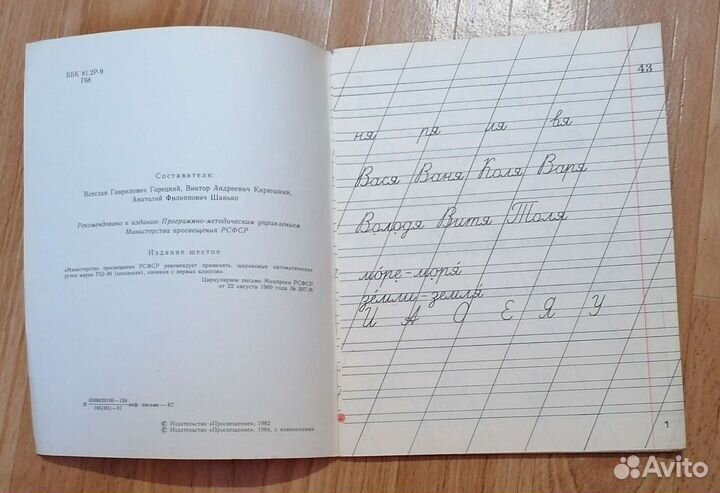 ББК 81.2Р-9
Г68
Составители:
Всеслав Гаврилович Горецкий, Виктор Андреевич Кирюшкин,
Анатолий Филиппович Шанько
Рекомендовано к изданию Программно-методическим управлением
Министерства просвещения РСФСР
Издание шестое
«Министерство просвещения РСФСР рекомендует применять шариковые автоматические
ручки марки РШ-49 (школьная), начиная с первых классов».
Циркулярное письмо Минпроса РСФСР
от 22 августа 1969 года № 307-М
инф. письмо — 87
© Издательство «Просвещение», 1982
© Издательство «Просвещение», 1984, с изменениями
43
ня ря ля вя
Вася Ваня Коля Варя
Володя Витя Толя
мо́ре - моря́
зе́мли - земля́
И А О Е Я У
1
Avito